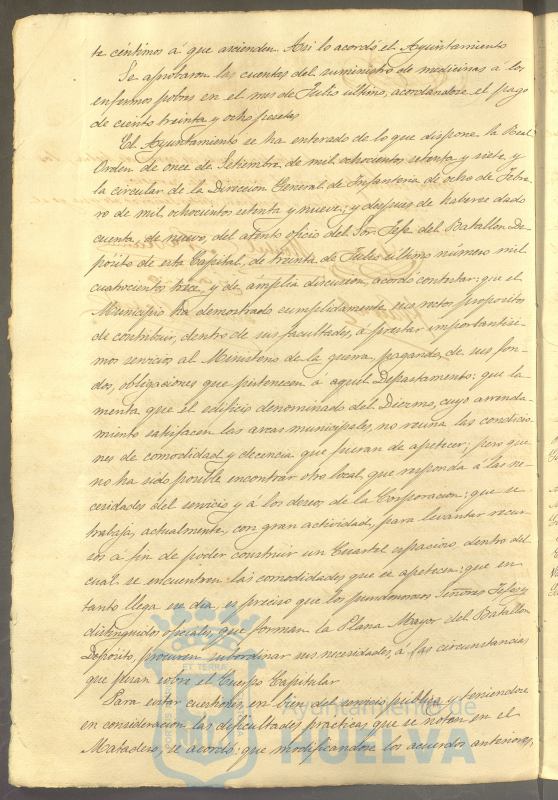 te céntimos á que ascienden. Asi lo acordó el Ayuntamiento
Se aprobaron las cuentas del suministro de medicinas a los
enfermos pobres en el mes de Julio último, acordándose el pago
de ciento treinta y ocho pesetas
El Ayuntamiento se ha enterado de lo que dispone la Real
Orden de once de Setiembre de mil ochocientos setenta y siete, y
la circular de la Direccion General de Infanteria de ocho de Febre
ro de mil ochocientos setenta y nueve; y despues de haberse dado
cuenta, de nuevo, del atento oficio del Sor. Jefe del Batallon De
pósito de esta Capital, de treinta de Julio último número mil
cuatrocientos trece, y de ámplia discusion, acordó contestar: que el
Municipio ha demostrado cumplidamente sus rectos propósitos
de contribuir, dentro de sus facultades, á prestar importantisi
mos servicios al Ministerio de la guerra, pagando, de sus fon
dos, obligaciones que pertenecen á aquel Departamento: que la
menta que el edificio denominado del Diezmo, cuyo arrenda
miento satisfacen las arcas municipales, no reuna las condicio
nes de comodidad y decencia que fueran de apetecer; pero que
no ha sido posible encontrar otro local, que responda á las ne
cesidades del servicio y á los deseos de la Corporacion: que se
trabaja, actualmente, con gran actividad, para levantar recur
sos á fin de poder construir un Cuartel espacioso dentro del
cual se encuentren las comodidades que se apetecen: que en
tanto llega ese dia, es preciso que los pundonorosos Señores Jefes y
distinguidos oficiales, que forman la Plana Mayor del Batallon
Depósito, procuren subordinar sus necesidades, á las circunstancias
que pesan sobre el Cuerpo Capitular
Para evitar cuestiones, en bien del servicio público y teniendose
en consideracion las dificultades practicas que se notan en el
Matadero, se acordó: que modificandose los acuerdos anteriores,
ET TERRÆ
Ayuntamiento de
HUELVA